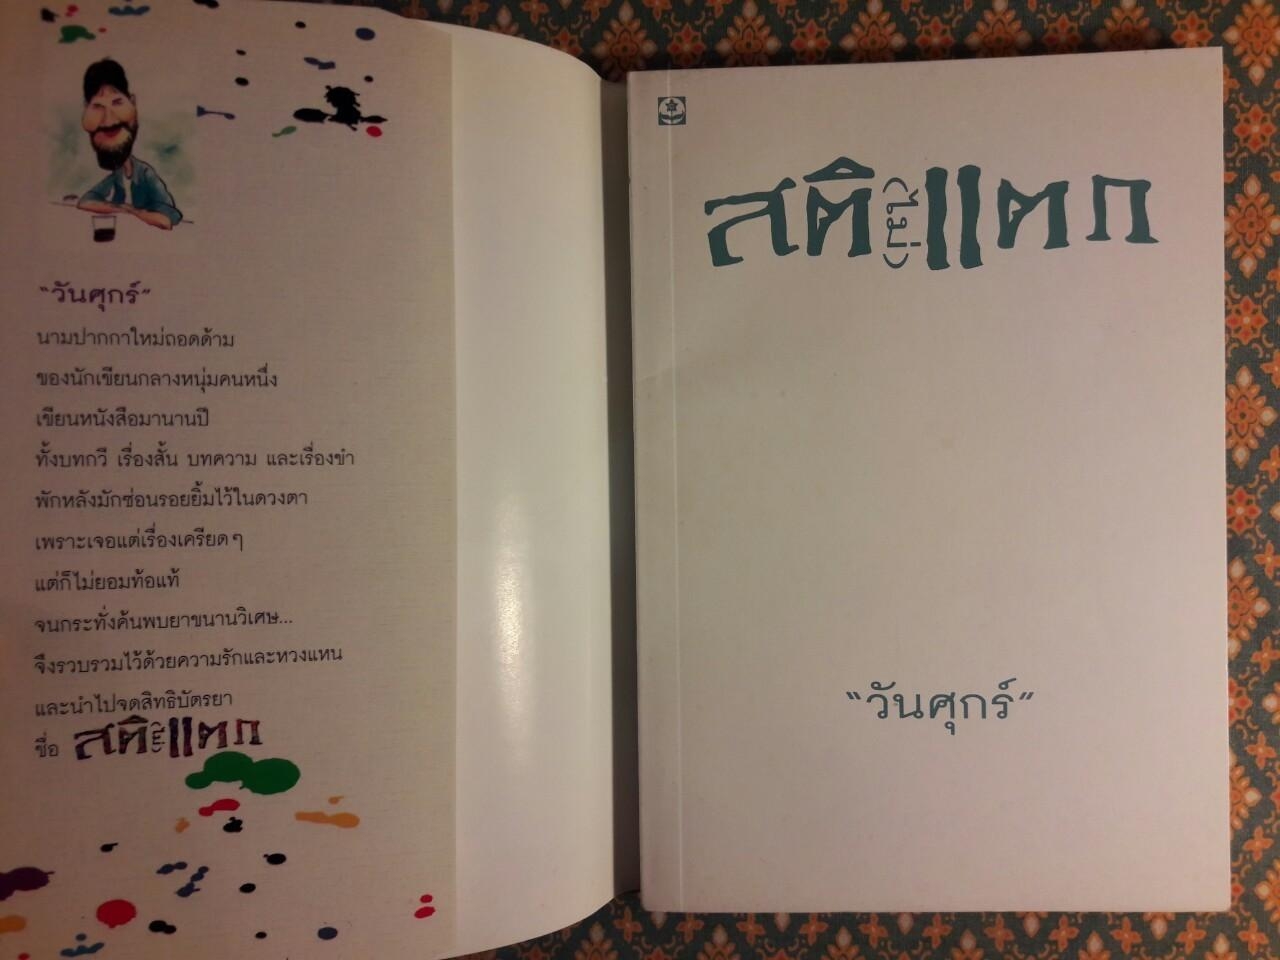 "วันศุกร์"
นามปากกาใหม่ถอดด้าม
ของนักเขียนกลางหนุ่มคนหนึ่ง
เขียนหนังสือมานานปี
ทั้งบทกวี เรื่องสั้น บทความ และเรื่องขำ
พักหลังมักซ่อนรอยยิ้มไว้ในดวงตา
เพราะเจอแต่เรื่องเครียดๆ
แต่ก็ไม่ยอมท้อแท้
จนกระทั่งค้นพบยาขนานวิเศษ...
จึงรวบรวมไว้ด้วยความรักและหวงแหน
และนำไปจดสิทธิบัตรยา
ชื่อ สติ(ไม่)แตก
สติ(ไม่)แตก
"วันศุกร์"